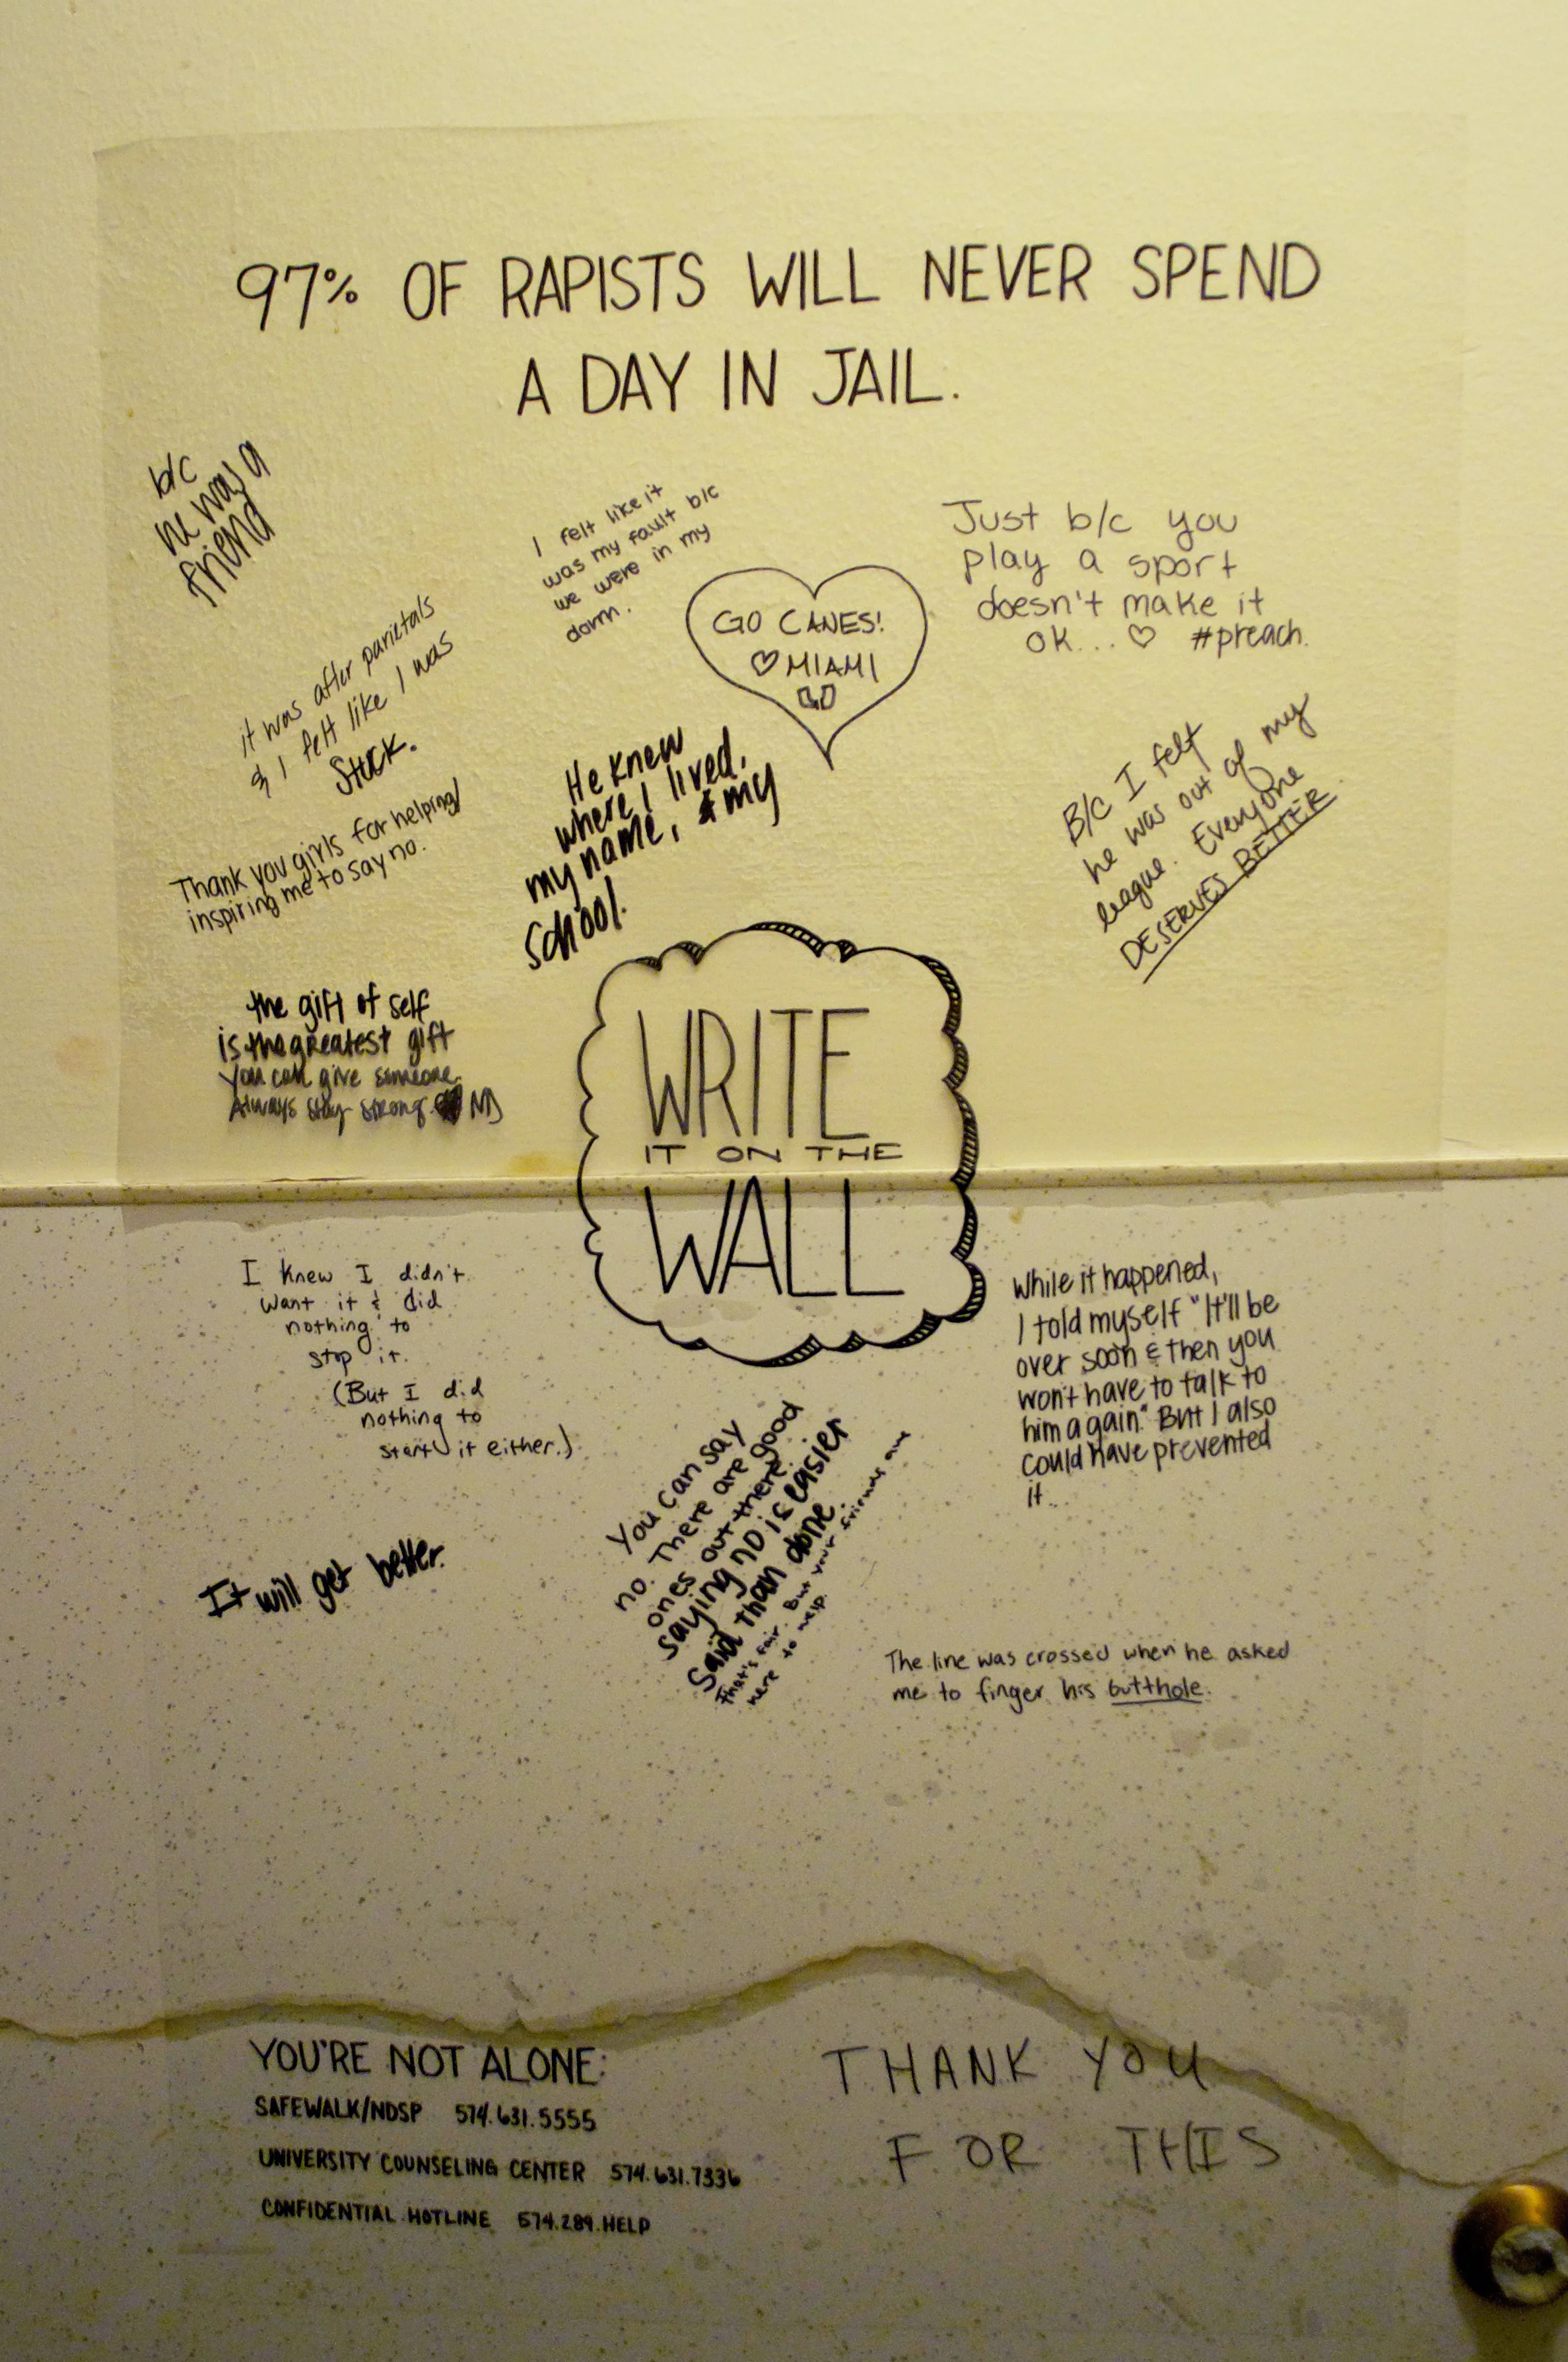 97% OF RAPISTS WILL NEVER SPEND
A DAY IN JAIL.
b/c
he was a
friend
I felt like it
was my fault b/c
we were in my
dorm.
GO CANES!
♡ MIAMI
Just b/c you
play a sport
doesn't make it
ok... ♡ #preach.
it was after parietals
& I felt like I was
stuck.
Thank you girls for helping/
inspiring me to say no.
He knew
where I lived,
my name, & my
school.
B/c I felt
he was out of my
league. Everyone
DESERVES BETTER
the gift of self
is the greatest gift
you can give someone.
Always stay strong ND
WRITE
IT ON THE
WALL
I knew I didn't
want it & did
nothing to
stop it.
(But I did
nothing to
start it either.)
While it happened,
I told myself "It'll be
over soon & then you
won't have to talk to
him again." But I also
could have prevented
it...
You can say
no. There are good
ones out there.
Saying no is easier
said than done.
That's fair. But your friends are
here to help.
It will get better.
The line was crossed when he asked
me to finger his butthole.
YOU'RE NOT ALONE:
SAFEWALK/NDSP 574.631.5555
UNIVERSITY COUNSELING CENTER 574.631.7336
CONFIDENTIAL HOTLINE 574.289.HELP
THANK YOU
FOR THIS